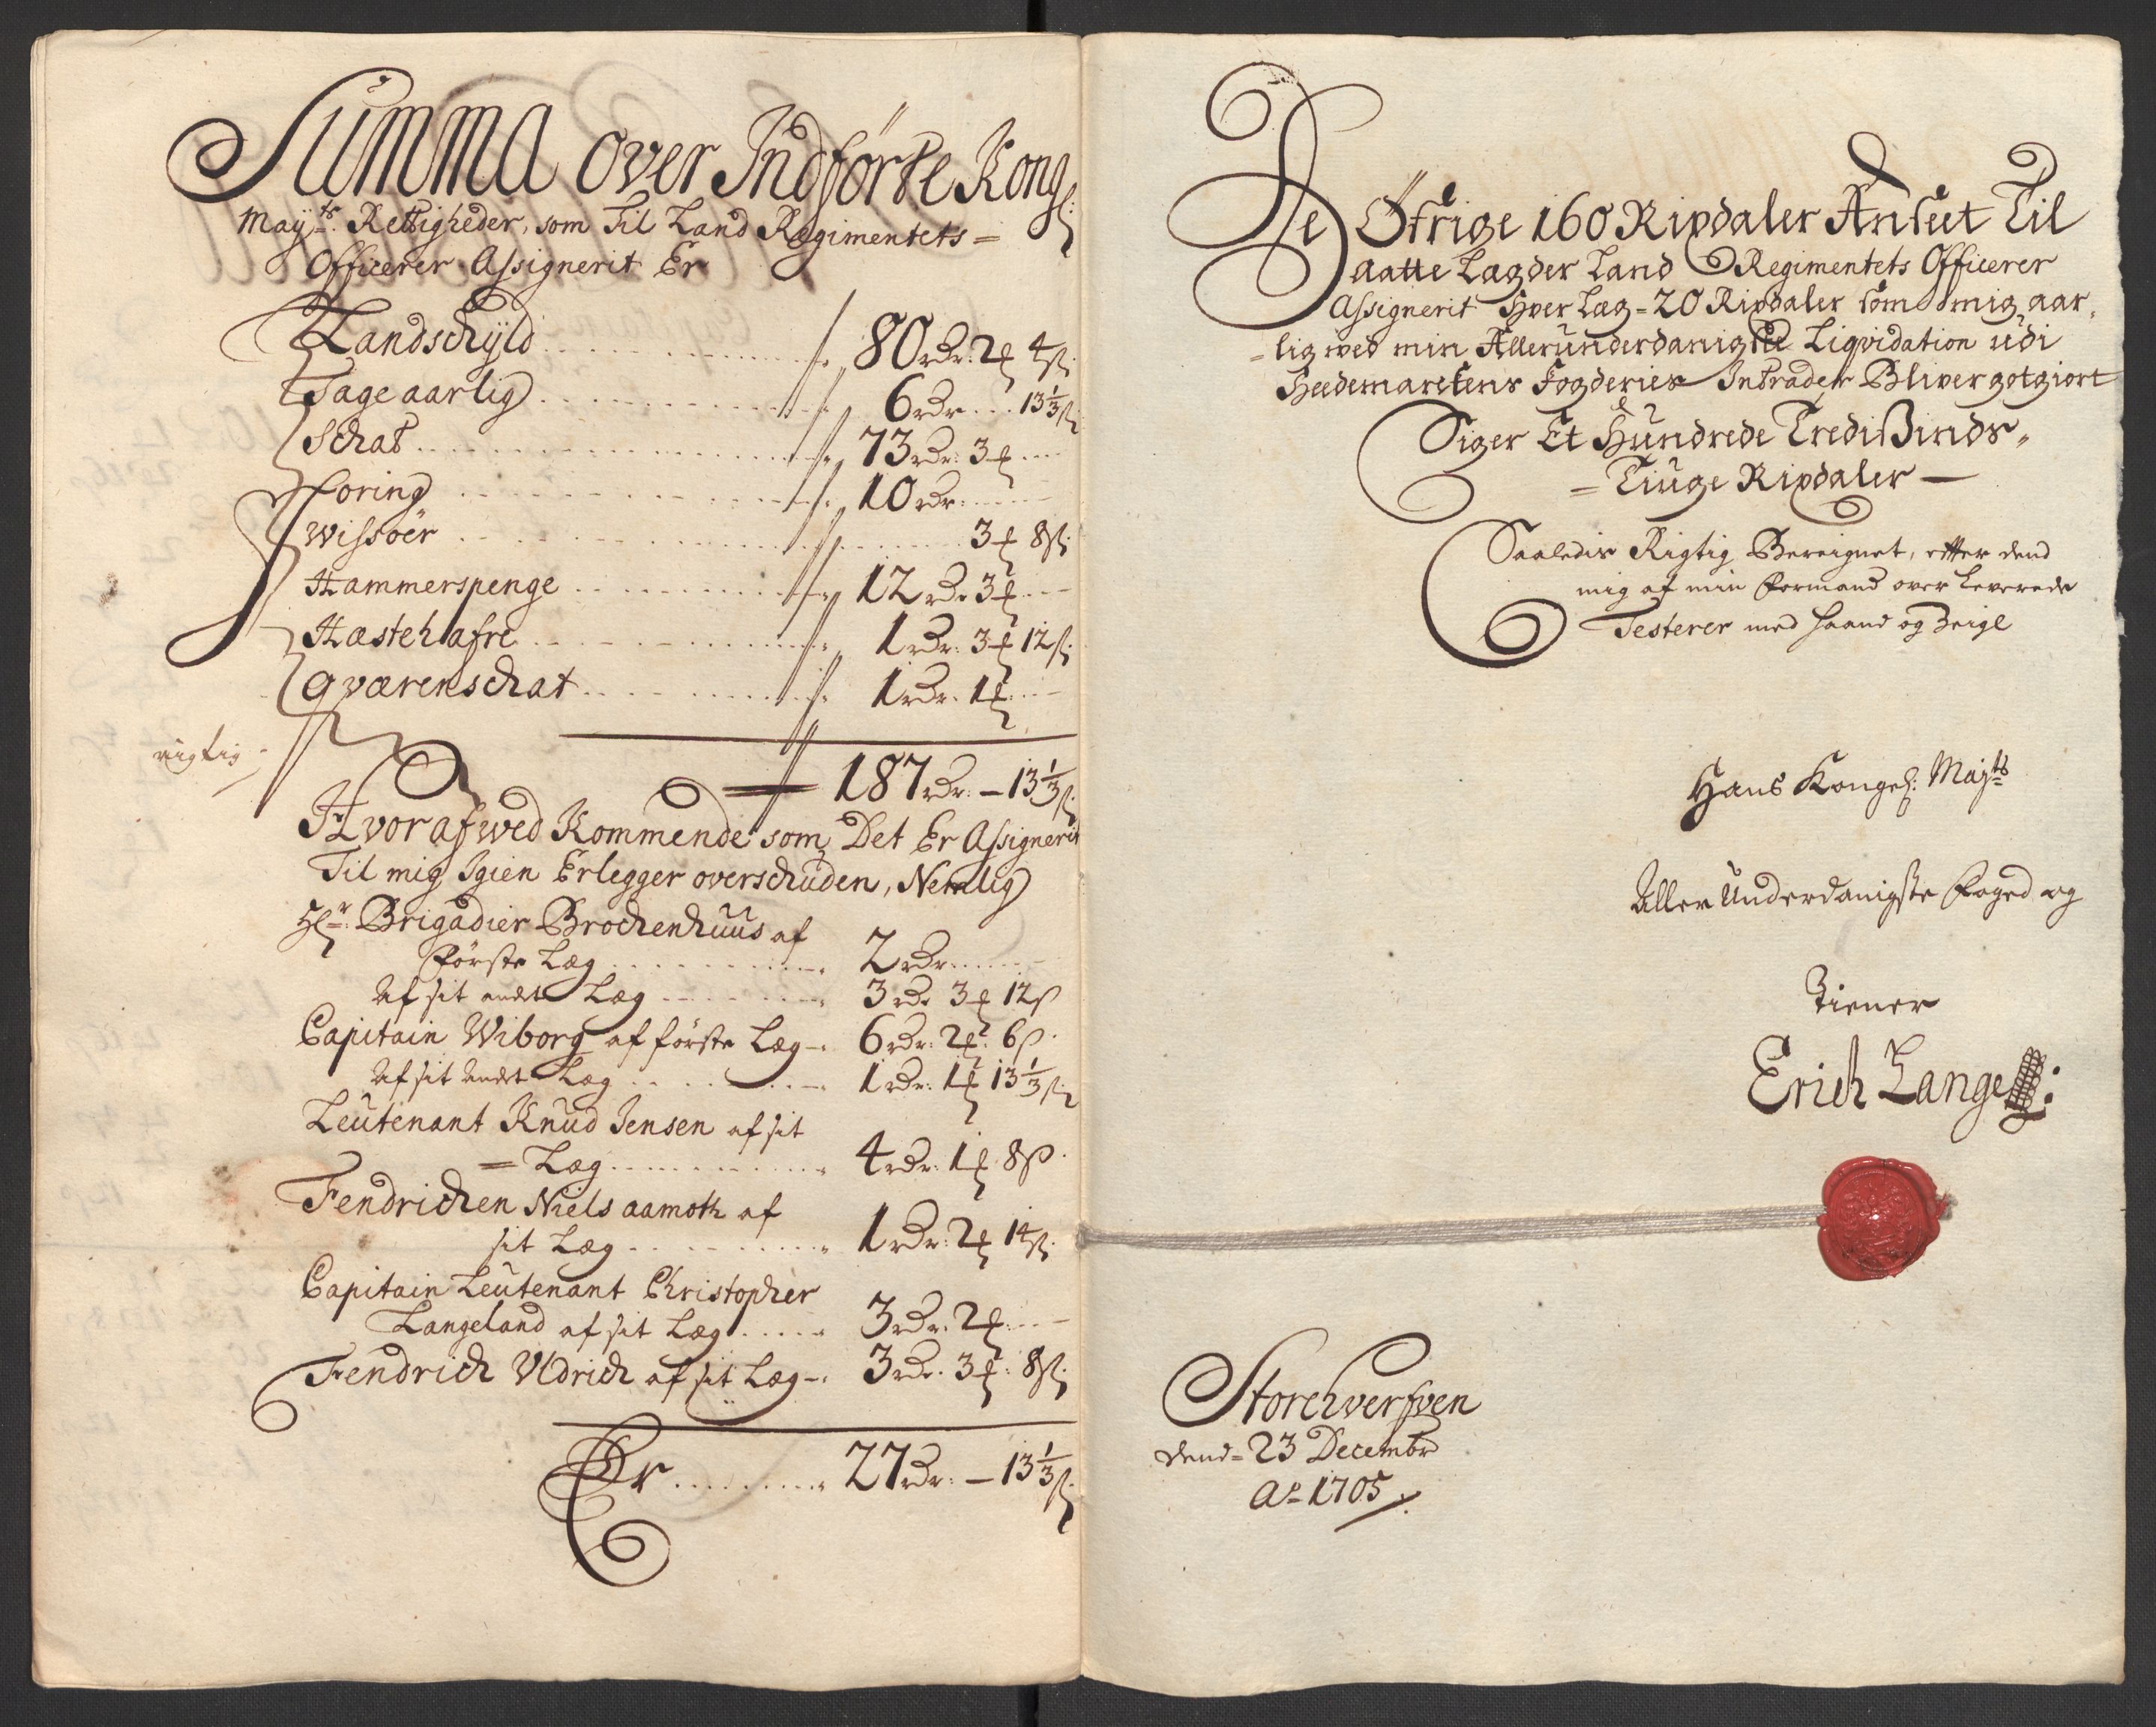 Summa over Indførte Kong:
Mayts. Rettigheder, som Til Land Regimentets =
Officerer Assignerit Er
Landschÿld 80 rdr: 2 ℔ 4 ß:
Tage aarlig 6 rdr 13⅓ ß:
Schat 73 rdr: 3 ℔
foring 10 rdr:
Wissøer 3 ℔ 8 ß:
Hammerspenge 12 rdr 3 ℔
Hæstehafre 1 rdr: 3 ℔ 12 ß:
Qværenschat 1 rdr. 1 ℔
rigtig
187 rdr: – 13⅓ ß:
Hvoraf wed Kommende som Det Er Assignerit
Til mig Igien Erlegger overschuden, Nemlig
Hr: Brigadier Brochenhuus af
Første Læg 2 rdr
Af sit andet Læg 3 rdr 3 ℔ 12 ß
Capitain Wiborg af første Læg 6 rdr: 2 ℔: 6 ß.
Af sit andet Læg 1 rdr: 1 ℔ 13⅓ ß:
Leutenant Knud Jensen af sit
= Læg 4 rdr: 1 ℔ 8 ß.
Fendrichen Niels Aamoth af
sit Læg 1 rdr: 2 ℔ 14 ß:
Capitain Leutenant Christopher
Langeland af sit Læg 3 rdr. 2 ℔
Fendrich Uldrich af sit Læg 3 rdr. 3 ℔: 8 ß:
Er 27 rdr: – 13⅓ ß:
De Øfrige 160 Rixdaler Anseet Til
aatte Lagder Land Regimentets Officerer
Assignerit Hver Læg = 20 Rixdaler som mig aar,
= lig wed min Allerunderdanigste Liqvidation udi
Heedemarckens Fogderies Intrader Bliver gotgiort
Siger Et Hundrede Tredisinds,
= Tiuge Rixdaler —
Saaledis Rigtig Bereignet, efter dend
mig af min Formand over Leverede
Testerer med Haand og Zeigl
Hans Kongel: Mayts
Aller Underdanigste Foged og
Tiener
Erich Lange
Storchversven
dend = 23 Decembr
Ao 1705